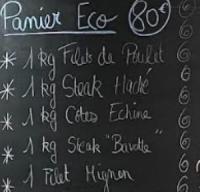 Panier Eco 80€
* 1 kg Filets de Poulet
* 1 kg Steak Haché
* 1 kg Côtes Echine
* 1 kg Steak "Bavette"
* 1 Filet Mignon